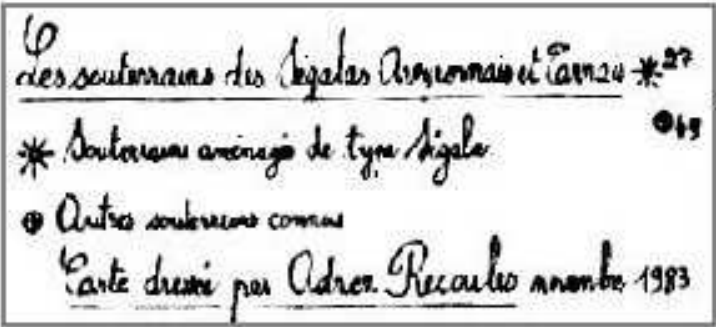 Les souterrains des Ségalas Aveyronnais et Tarnais 27
Souterrains aménagés de type Ségala 49
Autres souterrains connus
Carte dressée par Adrien Recoules novembre 1983